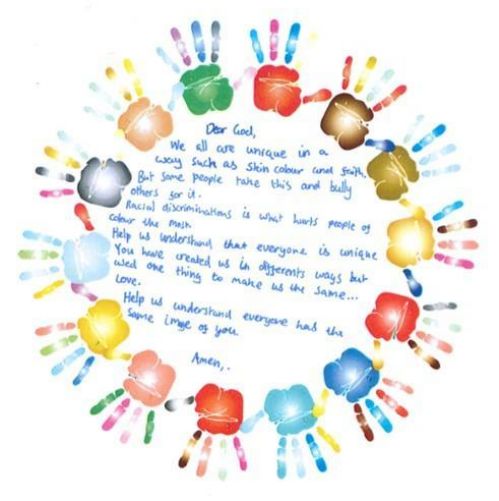 Dear God,
We all are unique in a
way such as skin colour and faith,
But some people take this and bully
others for it.
Racial discriminations is what hurts people of
colour the most.
Help us understand that everyone is unique
You have created us in differents ways but
used one thing to make us the same...
Love.
Help us understand everyone has the
same imge of you
Amen,.